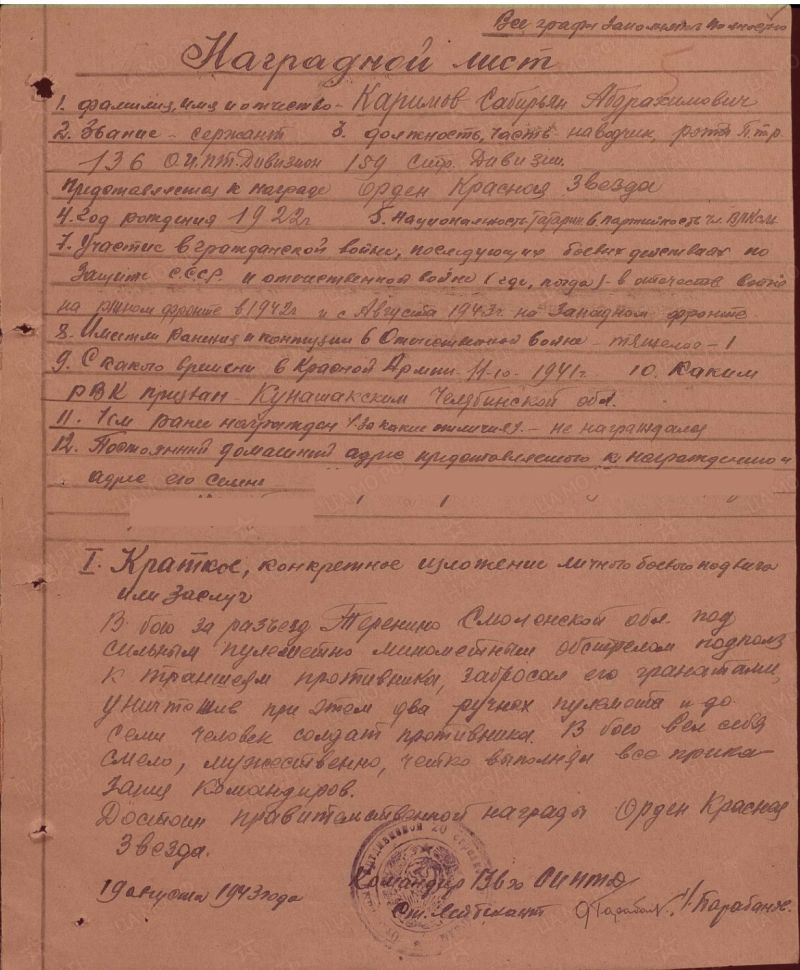 Все графы заполнять полностью
Наградной лист
1. фамилия, имя и отчество - Каримов Сабирьян Абдрахимович
2. Звание - сержант 3. должность, часть наводчик, роты П.тр.
136 О.И.ПТ. Дивизион 159 Стр. Дивизии.
Предоставляется к награде Орден Красная Звезда
4. Год рождения 1922г 5. Национальность Татарин 6. партийность чл. ВЛКСМ
7. Участие в гражданской войне, последующих боевых действиях по
защите СССР. и отечественной войне (где, когда) - в отечеств войне
на южном фронте в 1942г и с Августа 1943г на Западном фронте
8. Имеет ли ранения и контузии в Отечественной войне - тяжелое - 1
9. С какого времени в Красной Армии 11-10-1941г. 10. Каким
РВК призван - Кунашакским Челябинской обл.
11. Чем ранее награжден за какие отличия. - не награждался
12. Постоянный домашний адрес предоставляемого к награждению и
адрес его семьи
I. Краткое, конкретное изложение личного боевого подвига
или заслуг
В бою за разъезд Теренино Смоленской обл. под
сильным пулеметно минометным обстрелом подполз
к траншеям противника, забросал его гранатами,
уничтожив при этом два ручных пулемета и до
семи человек солдат противника. В бою вел себя
смело, мужественно, четко выполнял все прика-
зания командиров.
Достоин правительственной награды Орден Красная
Звезда.
19 августа 1943 года
Командир
Ст. Лейтенант